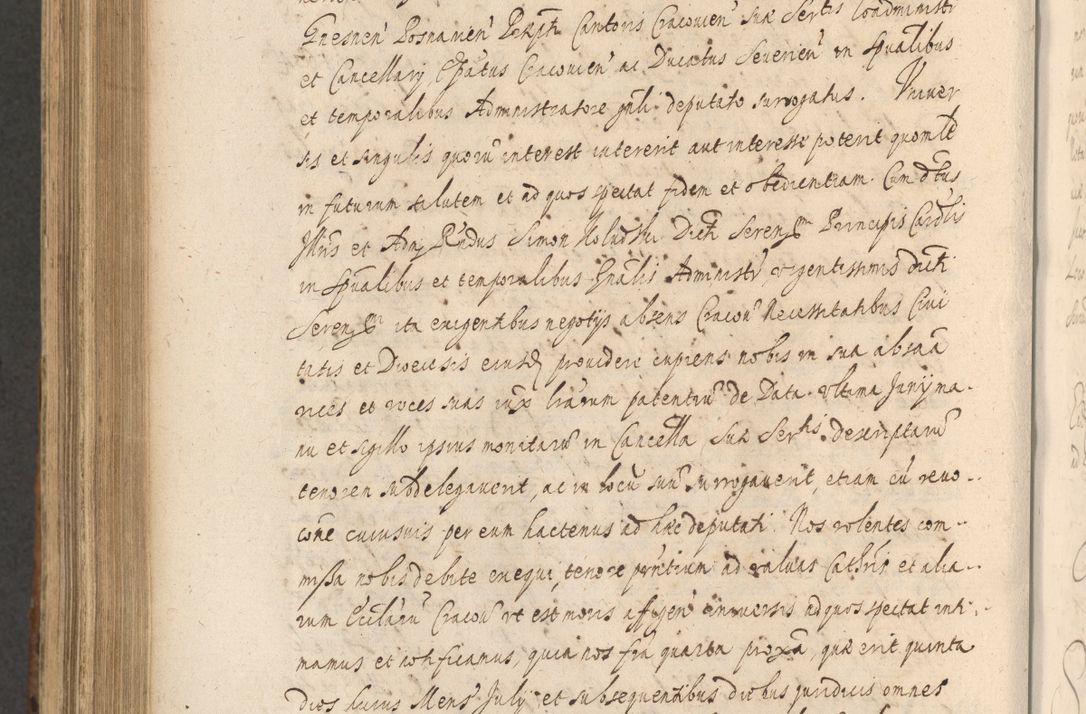 Gnesnen̄ Posnanien̄ Cantoris Cracovien̄ Suæ Sertis Coadministr
et Cancellarij Epātus Cracovien̄ ac Ducatus Severien̄ in Spūalibus
et temporalibus Administratore gn̄li deputato surrogatus. Univer
sis et singulis quorū interest intererit aut interesse poterit quomlt
in futurum salutem et ad quos spectat fidem et obedientiam. Cum
Illris et Adm Rn̄dus Simon Holudzki Serenssm Principis Cardlis
in Spūalibus et temporalibus Gnālis Administr̄ urgentissimis dicti
Serenssm ita exigentibus negotijs absens Cracov̄ Necessitatibus Civi
tatis et Dioecesis eiusd providere cupiens nobis in sua absn̄ā
vices et voces suas iux lr̄arum patentiū de Data ultima Junij ma-
nu et sigillo ipsius monitarū in Cancella Suæ Sertis descriptarū
tenorem subdelegaverit, ac in locū suū surrogaverit, etiam cū revo-
cōne cuiusvis per eum hactenus ad hæc deputati. Nos volentes com-
missa nobis debite exequi, tenore pr̄ntium ad valvas Cathris et alia-
rum Ecclārū Cracov̄ ut est moris affigen̄ universis ad quos spectat inti-
mamus et notificamus, quia nos fra quarta proxā, quæ erit quinta
dies huius Mens̄ Julij et subsequentibus diebus juridicis omnes